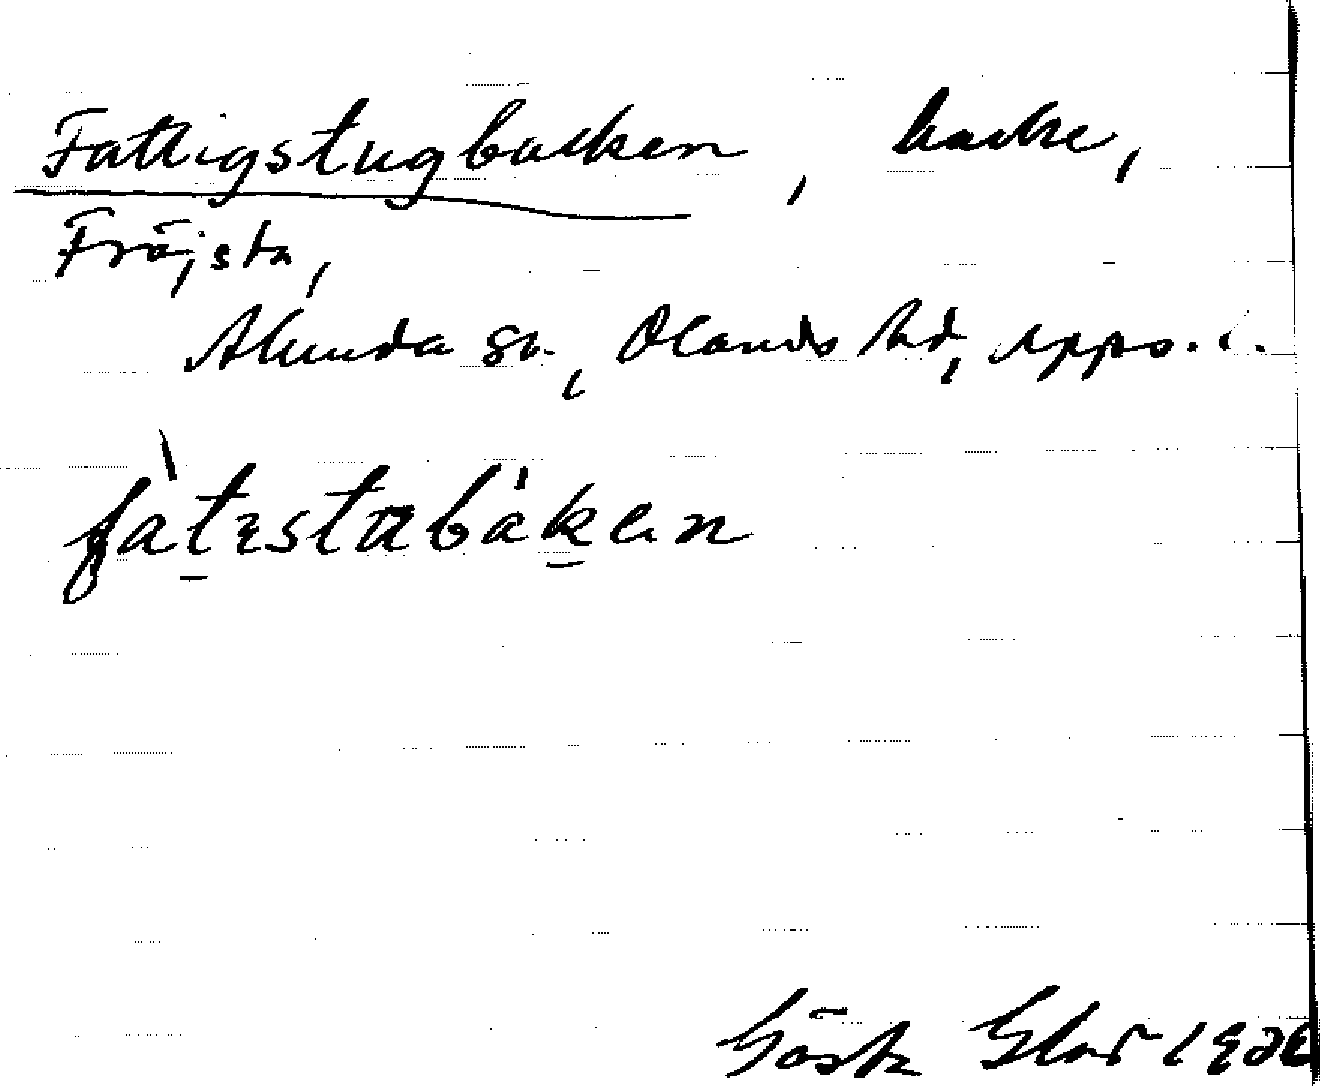 Fattigstugbacken, backe,
Fröjsta,
Alunda sn, Olands hd, Upps. l.
fàtestubàken
Gösta